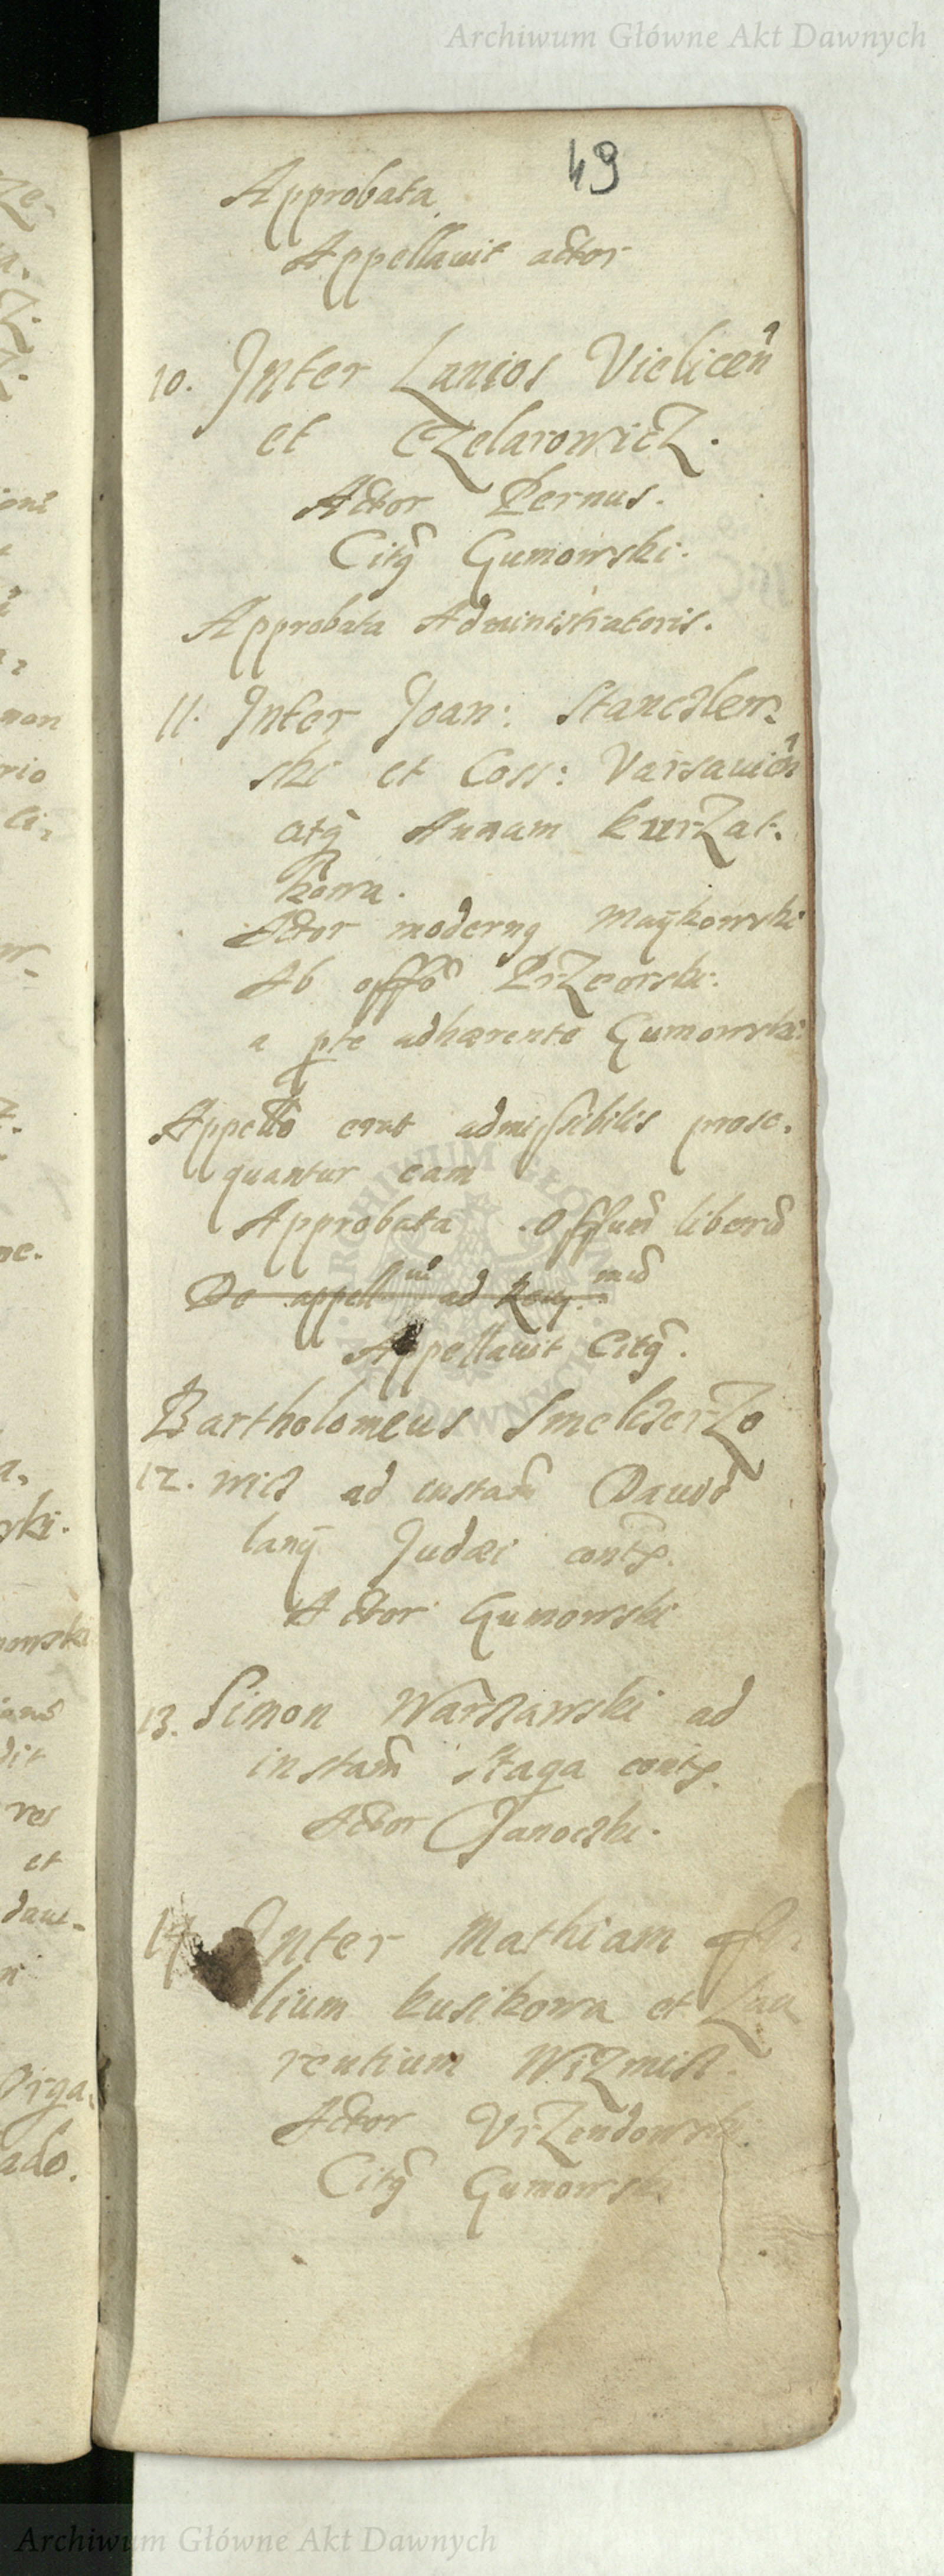 Archiwum Główne Akt Dawnych
49
Approbata
Appellauit actor
10. Inter Lanios Vielicen̄
et CzelarowicZ.
Actor Pernus.
Citq̃ Gumowski.
Approbata Administratoris.
11. Inter Joan: Stanczlew:
ski et Coss: Varsauien̄
atq̃ Annam kurZat:
kowa.
Actor modernq Maÿkowski
Ab offõ PrZeorski.
a pte adhærente Gumowski
Appellõ erat admissibilis prose:
quantur eam
Approbata Offum̃ liberũ
De appell ad
Appellauit Citq̃.
Bartholomeus SmelczerZo
12. wicz ad instam̃ Dauid
lanÿ Judæi contp.
Actor Gumowski
13. Simon Warszawski ad
instam̃ Staga contp.
Actor Janoczki.
14. Inter Mathiam
lium kusikowa et Lau
rentium
Actor VrZendowski.
Citq̃ Gumowski
Archiwum Główne Akt Dawnych